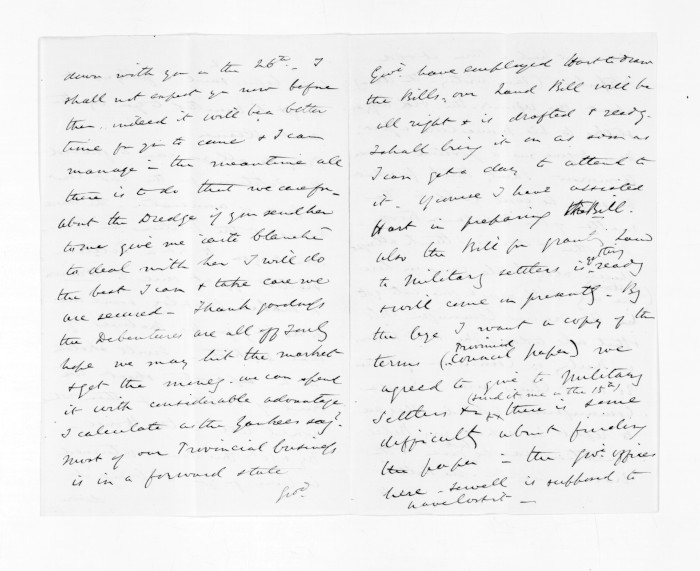 down with you on the 26th. I
shall not expect you now before
then. indeed it will be a better
time for you to come & I can
manage in the meantime all
there is to do that we care for
about the Dredge if you send her
to me give me carte blanche
to deal with her I will do
the best I can & take care we
are secured - Thank goodness
the Debentures are all off I only
hope we may hit the market
& get the money. we can spend
it with considerable advantage
I calculate as the Yankees say.
Most of our Provincial business
is in a forward state
Govt.
Govt. have employed Hart to draw
the Bills, our Land Bill will be
all right & is drafted & ready.
I shall bring it on as soon as
I can get a day to attend to
it. Of course I have assisted
Hart in preparing the Bill.
also the Bill for granting Land
to Military settlers is getting ready
& will come on presently - By
the bye I want a copy of the
terms (Provincial Council paper) we
agreed to give to Military
Settlers (send it me on the 15th) there is some
difficulty about finding
the paper in the Govt. Offices
here - Sewell is supposed to
have lost it -